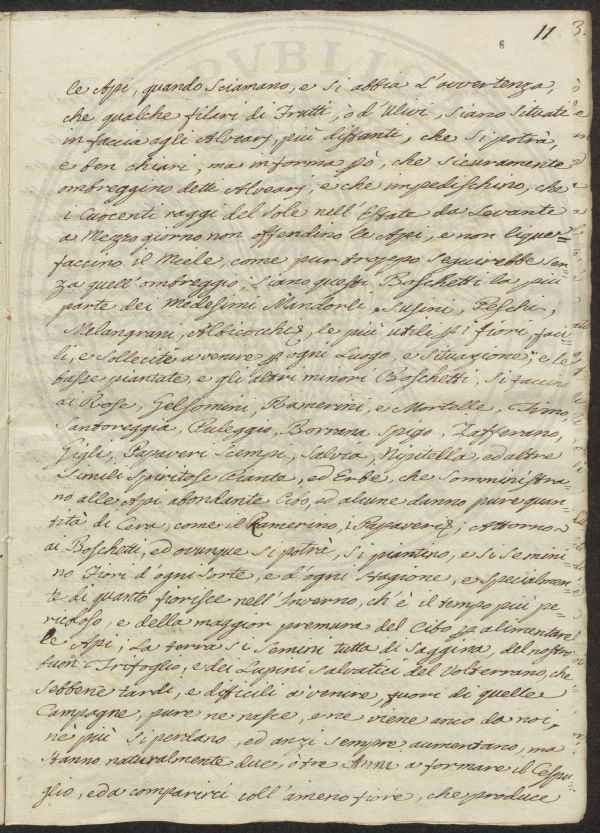 11
6
3.
le Api, quando Sciamano, e si abbia l'avvertenza,
che qualche filari di Frutti, o d'Ulivi, siano situati
in faccia agli Alvearj, più distante, che si potrà,
e ben chiari, ma in forma pò, che sicuramente
ombreggino detti Alvearj, e che impedischino, che
i Cuocenti raggi del Sole nell'Estate da Levante
a Mezzo giorno non offendino le Api, e non lique=
faccino il Miele, come pur troppo seguirebbe sen=
za quell'ombreggio. Siano questi Boschetti la più
parte dei medesimi Mandorli, Susini, Peschi,
Melangrani, Albicocchi, le più utili p i fiori, faci=
li, e sollecite a venire p ogni Luogo, e situazione; e le
basse piantate, e gli altri minori Boschetti, si faccino
di Rose, Gelsomini, Ramerini, e Mortelle, Timo,
Santoreggia, Puleggio, Borrana, Spigo, Zafferano,
Gigli, Papaveri Scempi, Salvia, Nipitella, ed altre
simili spiritose Piante, ed Erbe, che somministra=
no alle Api abondante Cibo, ed alcune danno pure quan=
tità di Cera, come il Ramerino, i Papaveri; Attorno
ai Boschetti, ed ovunque si potrà, si piantino, e si semini=
no Fiori d'ogni sorte, e d'ogni stagione, e specialmen=
te di quanto fiorisce nell'Inverno, ch'è il tempo più pe=
ricoloso, e della maggior premura del Cibo p alimentare
le Api; La terra si semini tutta di Saggina, del nostro
buon Trifoglio, e dei Lupini salvatici del Volterrano, che
sebbene tardi, e difficili a venire, fuori di quelle
Campagne, pure ne nasce, e ne viene anco da noi,
nè più si perdano, ed anzi sempre aumentano, ma
stanno naturalmente due, o tre Anni a formare il Cespu=
glio, ed a comparirci coll'ameno fiore, che produce